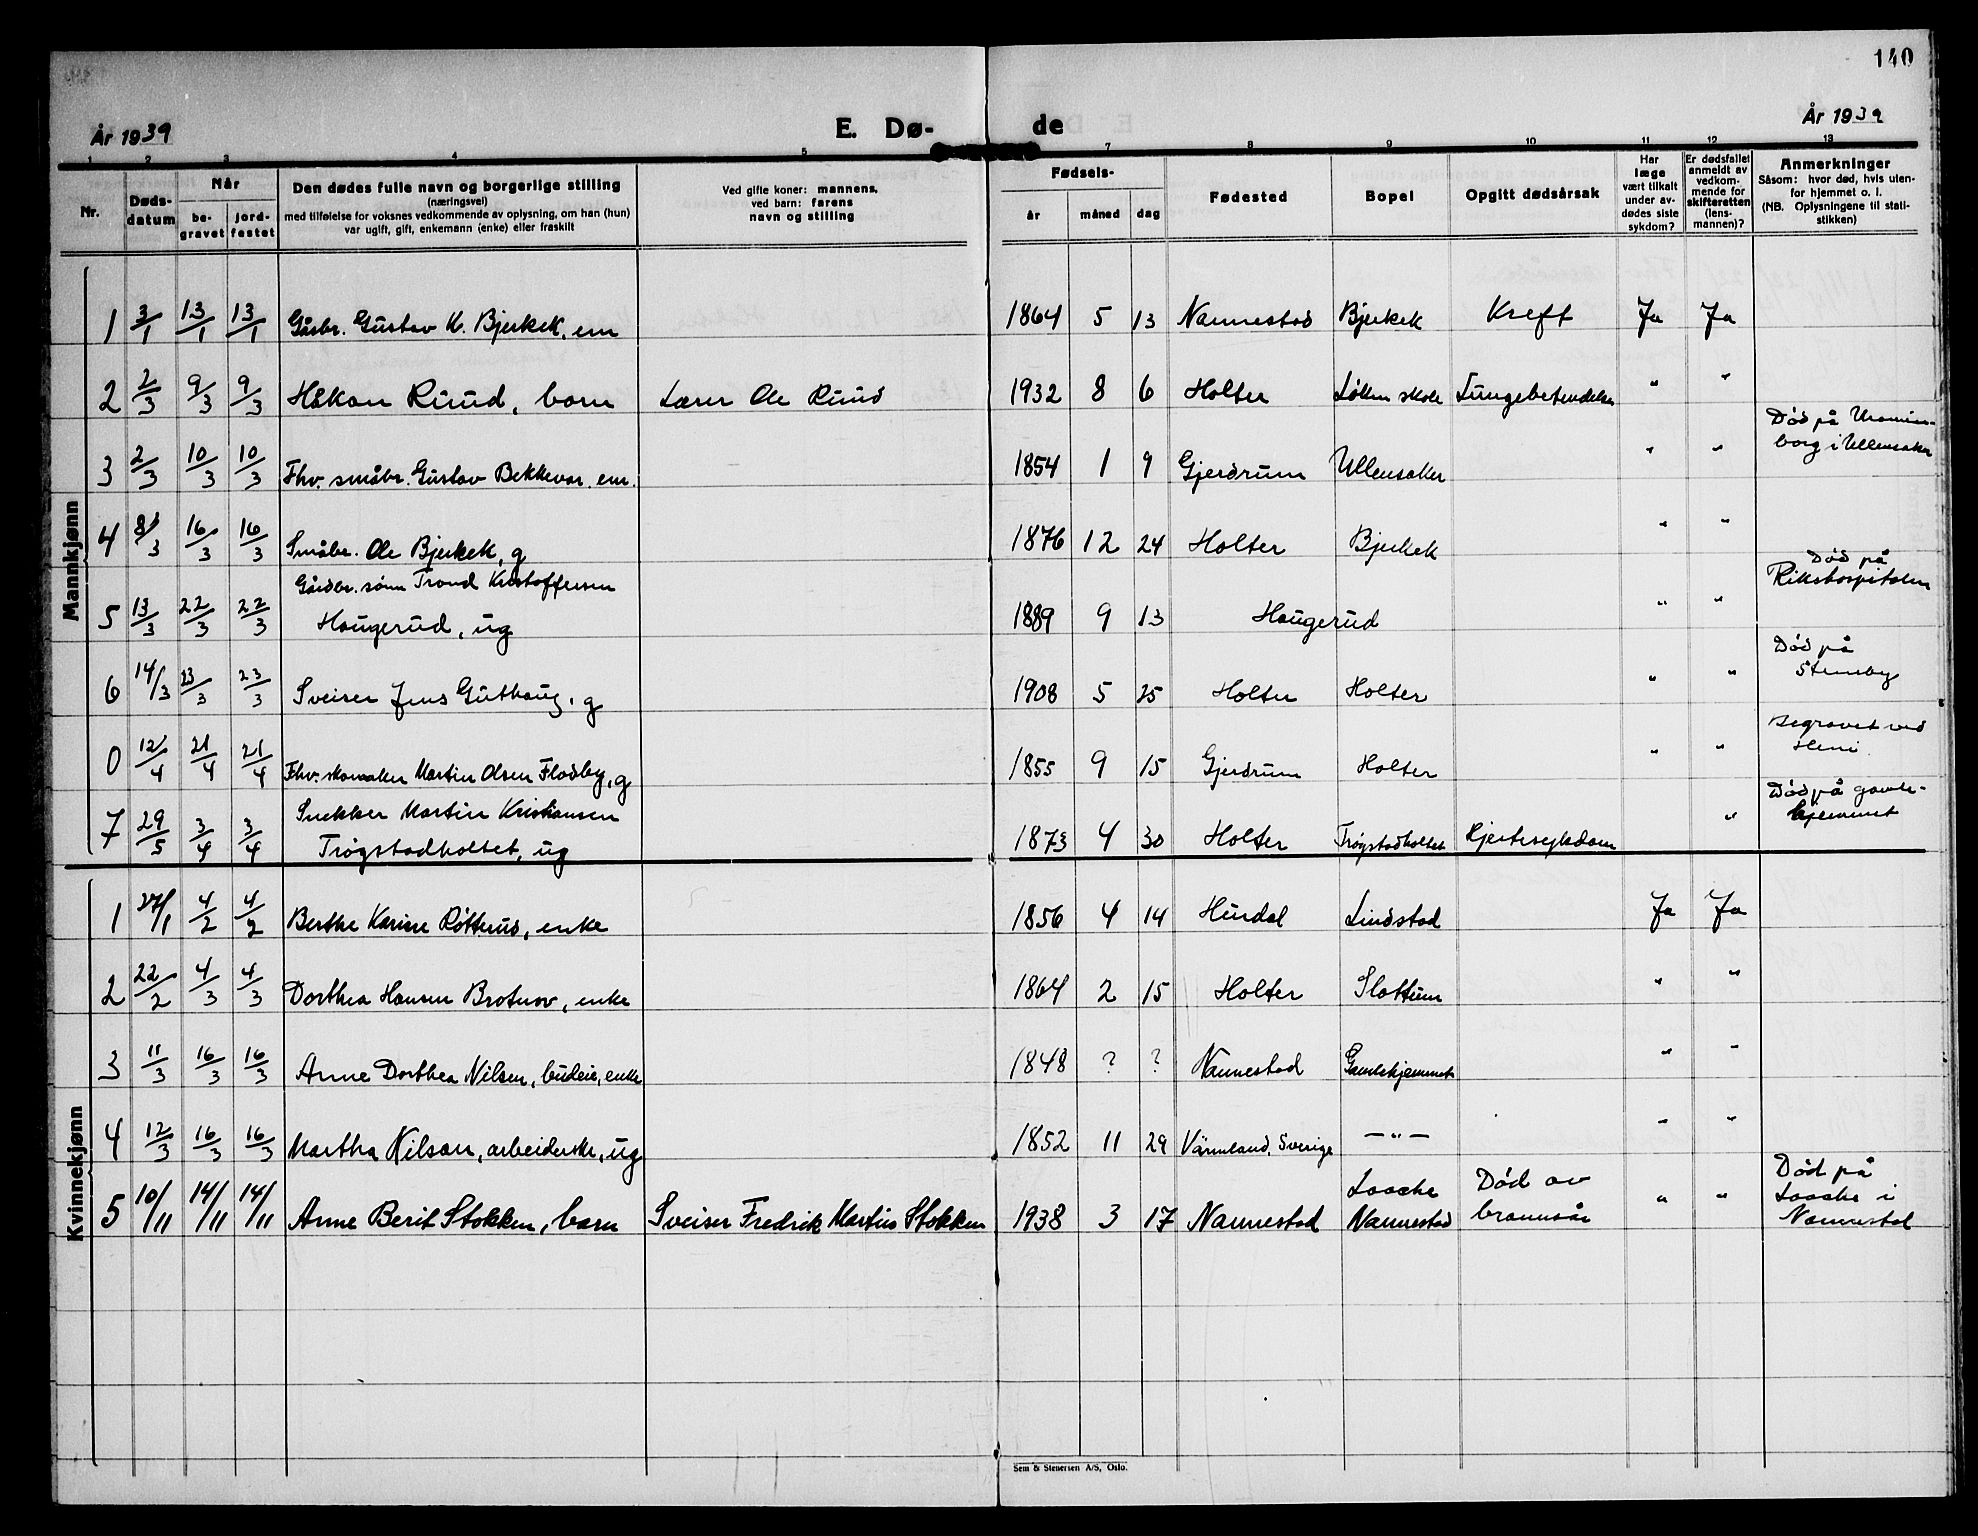 140
År 1939
E. Dø-
de
År 1939
1 2 3 4 5 7 8 9 10 11 12 13
Nr.
Døds-
datum
Når
be-
gravet
jord-
festet
Den dødes fulle navn og borgerlige stilling
(næringsvei)
med tilføielse for voksnes vedkommende av oplysning, om han (hun)
var ugift, gift, enkemann (enke) eller fraskilt
Ved gifte koner: mannens,
ved barn: farens
navn og stilling
Fødsels-
år
måned
dag
Fødested
Bopel
Opgitt dødsårsak
Har
læge
vært tilkalt
under av-
dødes siste
sykdom?
Er dødsfallet
anmeldt av
vedkom-
mende for
skifteretten
(lens-
mannen)?
Anmerkninger
Såsom: hvor død, hvis uten-
for hjemmet o. l.
(NB. Oplysningene til stati-
stikken)
Mannkjønn
1 3/1 13/1 13/1 Gårbr. Gustav K. Bjerkek, em 1864 5 13 Nannestad Bjerkek Kreft Ja Ja
2 2/3 9/3 9/3 Håkon Ruud, barn Lærer Ole Ruud 1932 8 6 Holter Løken skole Lungebetendelse " "
3 2/3 10/3 10/3 Fhv. småbr. Gustav Bekkevar. em. 1854 1 9 Gjerdrum Ullensaker " " Død på
borg i Ullensaker
4 8/3 16/3 16/3 Småbr. Ole Bjerkek, g 1876 12 24 Holter Bjerkek " "
5 13/3 22/3 22/3 Gårdbr. sønn Trond Kristoffersen
Haugerud, ug 1889 9 13 Haugerud " " Død på
Rikshospitalen
6 14/3 23/3 23/3 Sveiser Jens Guthaug, g 1908 5 25 Holter Holter " " Død på
Stensby
0 12/4 21/4 21/4 Fhv. skomaker Martin Olsen Flodby, g 1855 9 15 Gjerdrum Holter " " Begravet ved
Heni
7 29/5 3/4 3/4 Snekker Martin Kristiansen
Trøgstadholtet, ug 1873 4 30 Holter Trøgstadholtet Hjertesykdom " Død på gamle-
hjemmet
Kvinnekjønn
1 27/1 4/2 4/2 Berthe Karine Røtterud, enke 1856 4 14 Hurdal Lindstad Ja Ja
2 22/2 4/3 4/3 Dorthea Hansen Brotnov, enke 1864 2 15 Holter Slattum " "
3 11/3 16/3 16/3 Anne Dorthea Nilsen, budeie, enke 1848 ? ? Nannestad Gamlehjemmet " "
4 12/3 16/3 16/3 Martha Nilson, arbeiderske, ug 1852 11 29 Värmland, Sverige —"— " "
5 10/11 14/11 14/11 Anne Berit Stokken, barn Sveiser Fredrik Martius Stokken 1938 3 17 Nannestad Laache
Nannestad Død av
brannsår " " Død på
Laache i
Nannestad
Sem & Stenersen A/S, Oslo.